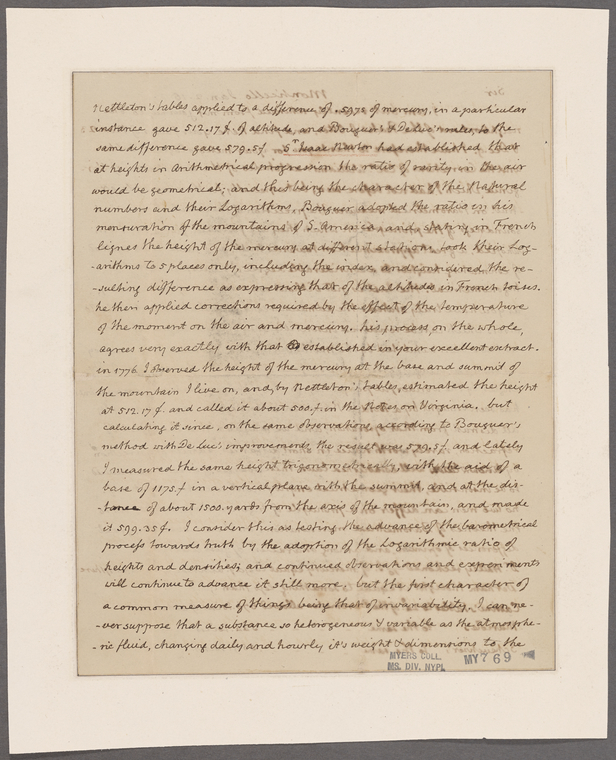 Nettleton's tables applied to a difference of .5975 of mercury, in a particular
instance gave 512.17 f. of altitude, and Bouguer's & De Luc's rules, to the
same difference gave 579.5 f. Sr. Isaac Newton had established that
at heights in Arithmetrical progression the ratio of rarity in the air
would be geometrical; and this being the character of the Natural
numbers and their Logarithms, Bouguer adopted the ratio in his
mensuration of the mountains of S. America, and, stating in French
lignes the height of the mercury at different stations, took their Log-
-arithms to 5 places only, including the index, and considered the re-
-sulting difference as expressing that of the altitudes in French toises.
he then applied corrections required by the effect of the temperature
of the moment on the air and mercury. his process, on the whole,
agrees very exactly with that established in your excellent extract.
in 1776. I observed the height of the mercury at the base and summit of
the mountain I live on, and, by Nettleton's tables, estimated the height
at 512.17 f. and called it about 500. f. in the Notes on Virginia. but
calculating it since, on the same observations, according to Bouguer's
method with De Luc's improvements, the result was 579.5 f. and lately
I measured the same height trigonometrically, with the aid of a
base of 1175. f in a vertical plane with the summit, and at the dis-
-tance of about 1500. yards from the axis of the mountain, and made
it 599.35 f. I consider this as testing the advance of the barometrical
process towards truth by the adoption of the Logarithmic ratio of
heights and densities; and continued observations and experiments
will continue to advance it still more. but the first character of
a common measure of things being that of invariability, I can ne-
-ver suppose that a substance so heterogeneous & variable as the atmosphe-
-ric fluid, changing daily and hourly it's weight & dimensions to the
MYERS COLL.
MS. DIV. NYPL
MY 7 69